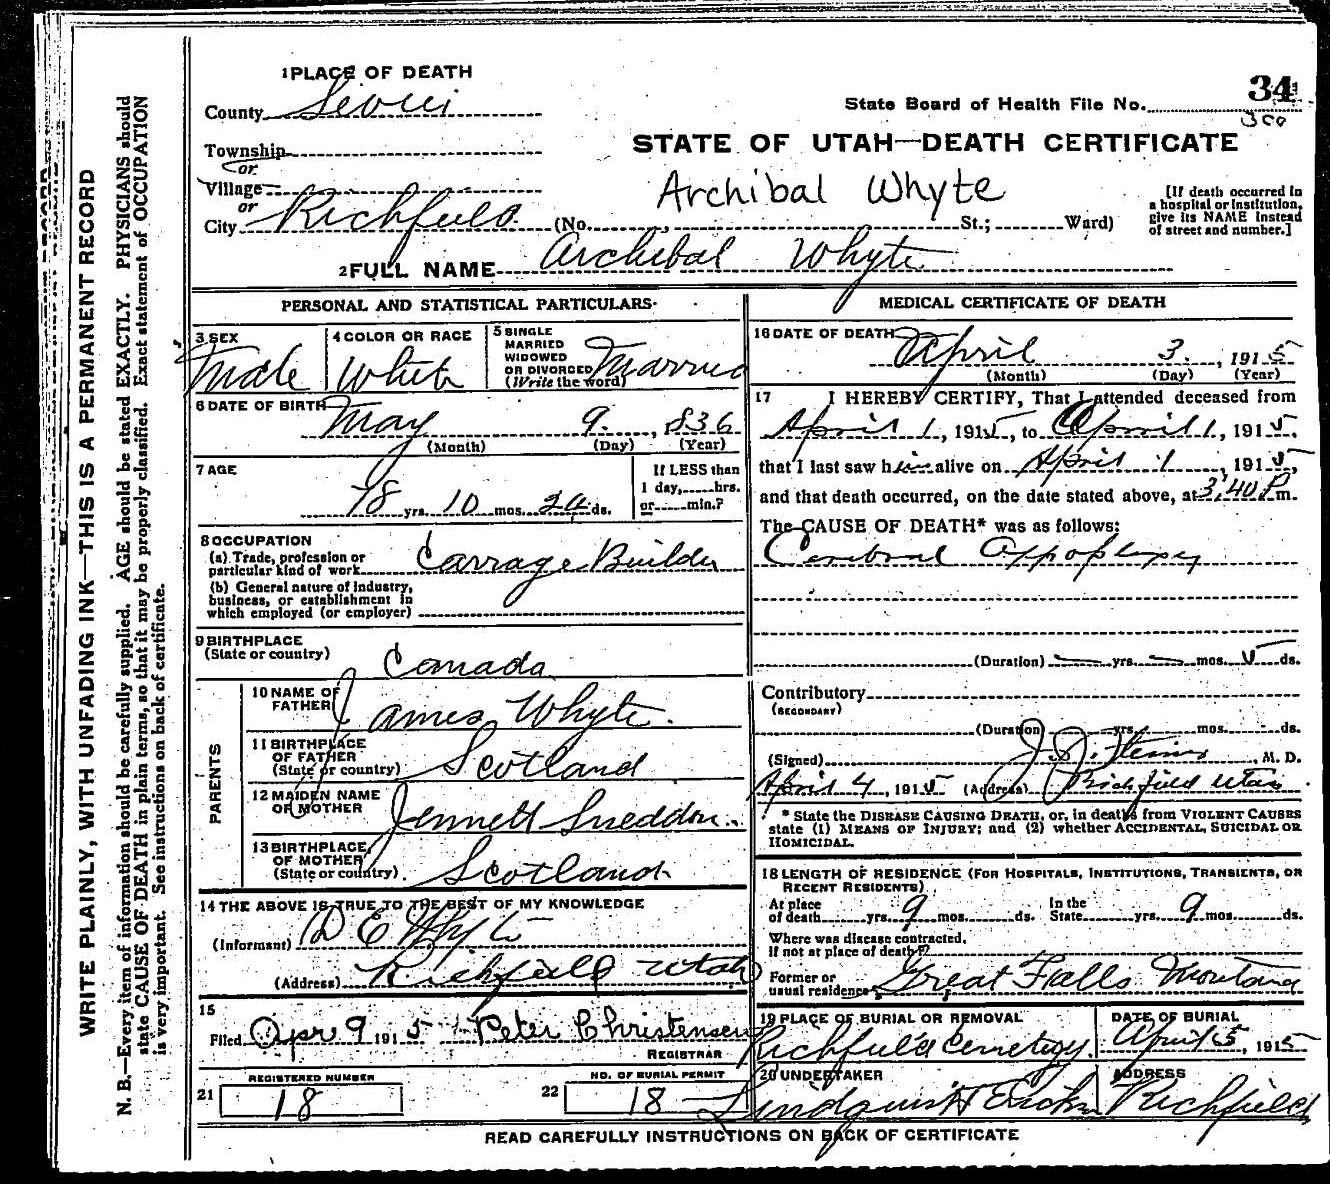 WRITE PLAINLY, WITH UNFADING INK—THIS IS A PERMANENT RECORD
N. B.—Every item of information should be carefully supplied. AGE should be stated EXACTLY. PHYSICIANS should
state CAUSE OF DEATH in plain terms, so that it may be properly classified. Exact statement of OCCUPATION
is very important. See instructions on back of certificate.
1 PLACE OF DEATH
County Sevier
Township
or
Village
or
City Richfield
State Board of Health File No. 34
300
STATE OF UTAH—DEATH CERTIFICATE
Archibal Whyte
(No. St.; Ward)
[If death occurred in
a hospital or institution,
give its NAME instead
of street and number.]
2 FULL NAME Archibal Whyte
PERSONAL AND STATISTICAL PARTICULARS
3 SEX
Male
4 COLOR OR RACE
White
5 SINGLE
MARRIED
WIDOWED
OR DIVORCED
(Write the word)
Married
6 DATE OF BIRTH
May 9. , 1836
(Month) (Day) (Year)
7 AGE
78 yrs. 10 mos. 24 ds.
If LESS than
1 day, hrs.
or min.?
8 OCCUPATION
(a) Trade, profession or
particular kind of work Carrage Builder
(b) General nature of industry,
business, or establishment in
which employed (or employer)
9 BIRTHPLACE
(State or country)
Canada
PARENTS
10 NAME OF
FATHER James Whyte.
11 BIRTHPLACE
OF FATHER
(State or country) Scotland
12 MAIDEN NAME
OF MOTHER Jennett Sneddon
13 BIRTHPLACE
OF MOTHER
(State or country) Scotland
14 THE ABOVE IS TRUE TO THE BEST OF MY KNOWLEDGE
(Informant) D E Whyte
(Address) Richfield Utah
15
Filed Apr 9 1915 Peter Christensen
REGISTRAR
21 REGISTERED NUMBER
18
22 NO. OF BURIAL PERMIT
18
MEDICAL CERTIFICATE OF DEATH
16 DATE OF DEATH
April 3. , 1915
(Month) (Day) (Year)
17 I HEREBY CERTIFY, That I attended deceased from
April 1, 1915, to April 1, 1915,
that I last saw him alive on April 1, 1915,
and that death occurred, on the date stated above, at 3:40 P.m.
The CAUSE OF DEATH* was as follows:
Cerebral Appoplexy
(Duration) yrs. mos. 5 ds.
Contributory
(SECONDARY)
(Duration) yrs. mos. ds.
(Signed) J. J. M. D.
April 4, 1915 (Address) Richfield Utah
* State the DISEASE CAUSING DEATH, or, in deaths from VIOLENT CAUSES
state (1) MEANS OF INJURY; and (2) whether ACCIDENTAL, SUICIDAL OR
HOMICIDAL.
18 LENGTH OF RESIDENCE (FOR HOSPITALS, INSTITUTIONS, TRANSIENTS, OR
RECENT RESIDENTS)
At place
of death yrs. 9 mos. ds.
In the
State yrs. 9 mos. ds.
Where was disease contracted,
if not at place of death?
Former or
usual residence Great Falls Montana
19 PLACE OF BURIAL OR REMOVAL
Richfield Cemetery.
DATE OF BURIAL
April 5, 1915
20 UNDERTAKER
Lindquist
ADDRESS
Richfield
READ CAREFULLY INSTRUCTIONS ON BACK OF CERTIFICATE